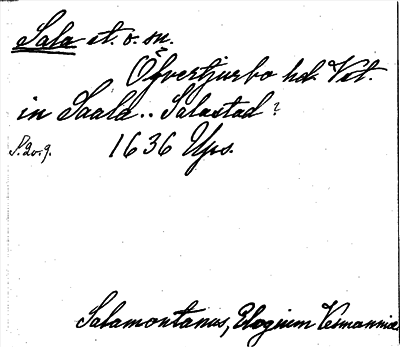 Sala st. o. sn.
Öfvertjurbo hd. Vst.
in Saala.. Salastad?
S. 20. 9. 1636 Ups.
Salamontanus, Elogium Vesmanniæ